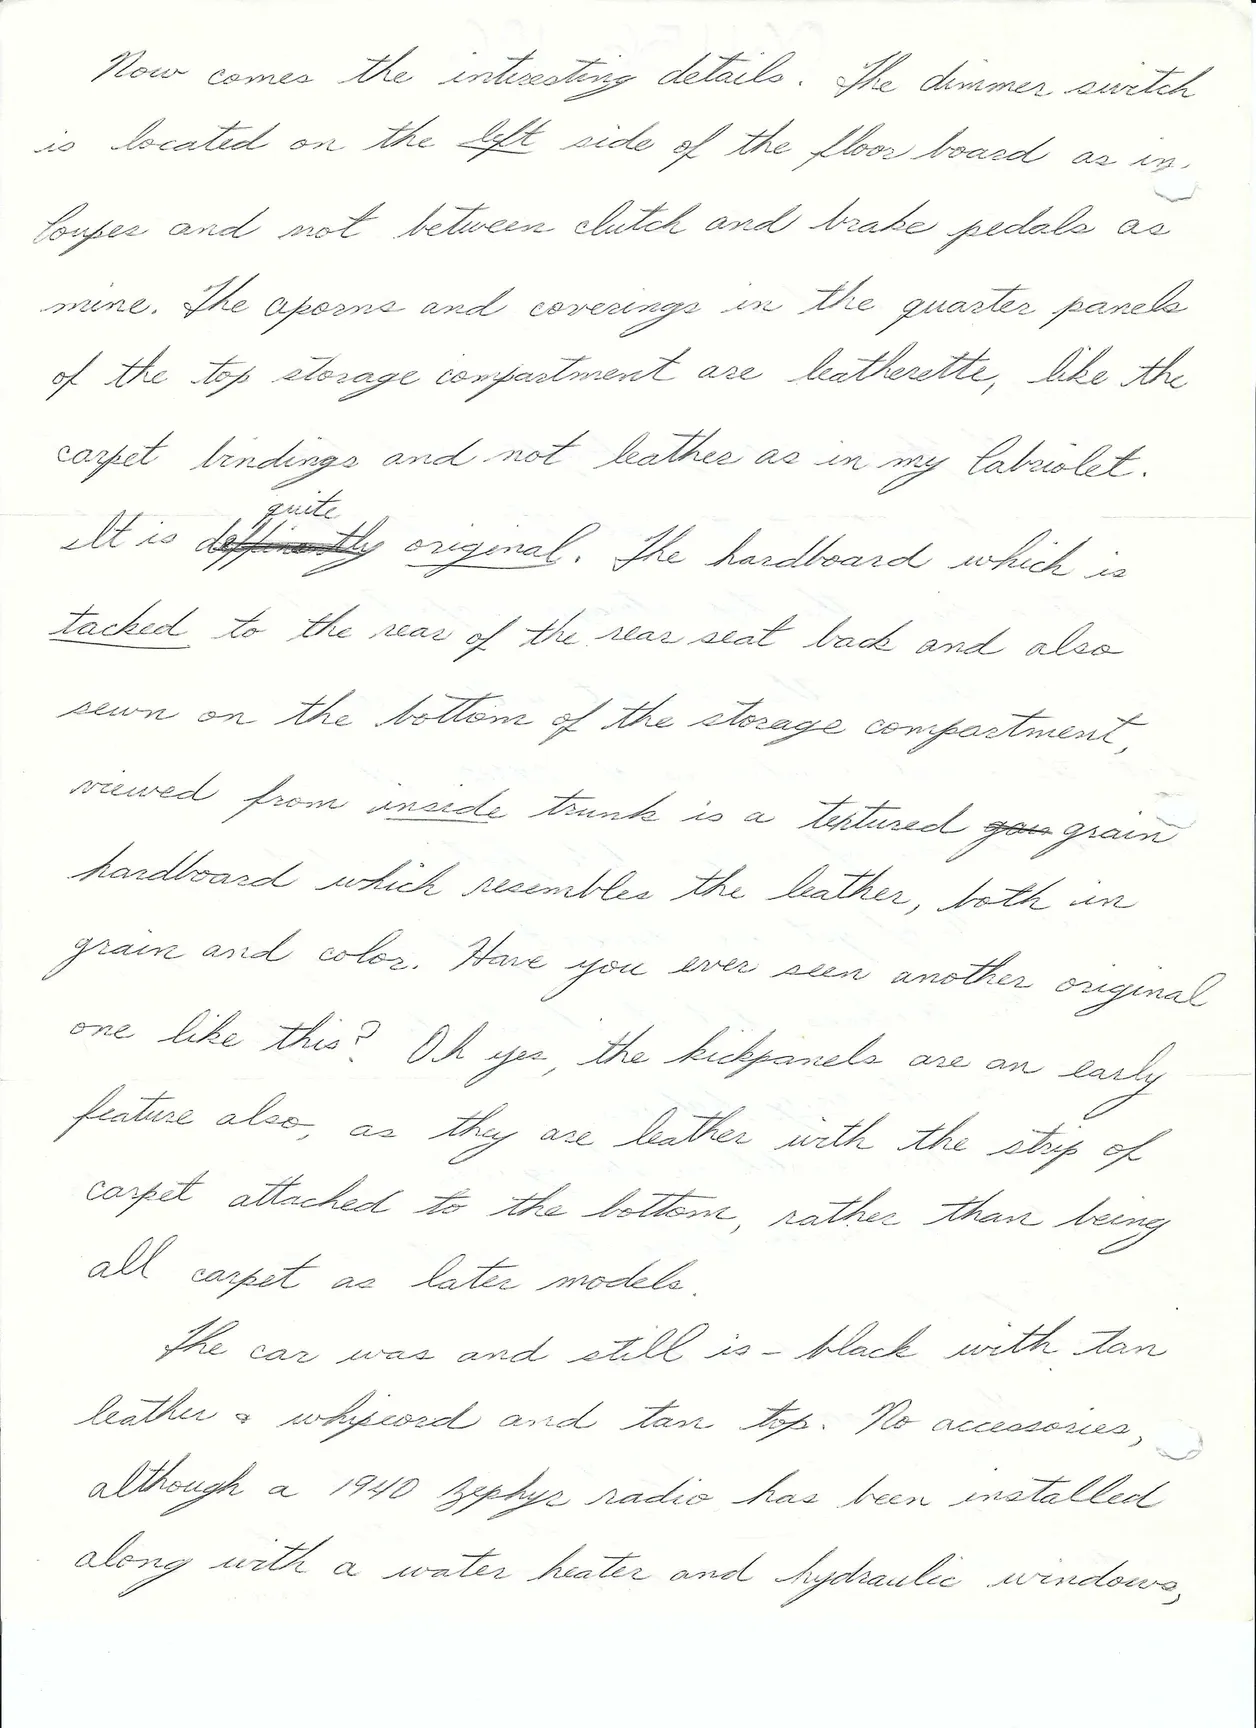 Now comes the interesting details. The dimmer switch
is located on the left side of the floor board as in
Coupes and not between clutch and brake pedals as
mine. The aporns and coverings in the quarter panels
of the top storage compartment are leatherette, like the
carpet bindings and not leather as in my Cabriolet.
quite
It is deffinently original. The hardboard which is
tacked to the rear of the rear seat back and also
sewn on the bottom of the storage compartment,
viewed from inside trunk is a textured grain
hardboard which resembles the leather, both in
grain and color. Have you ever seen another original
one like this? Oh yes, the kickpanels are an early
feature also, as they are leather with the strip of
carpet attached to the bottom, rather than being
all carpet as later models.
The car was and still is - black with tan
leather & whipcord and tan top. No accessories,
although a 1940 Zephyr radio has been installed
along with a water heater and hydraulic windows,